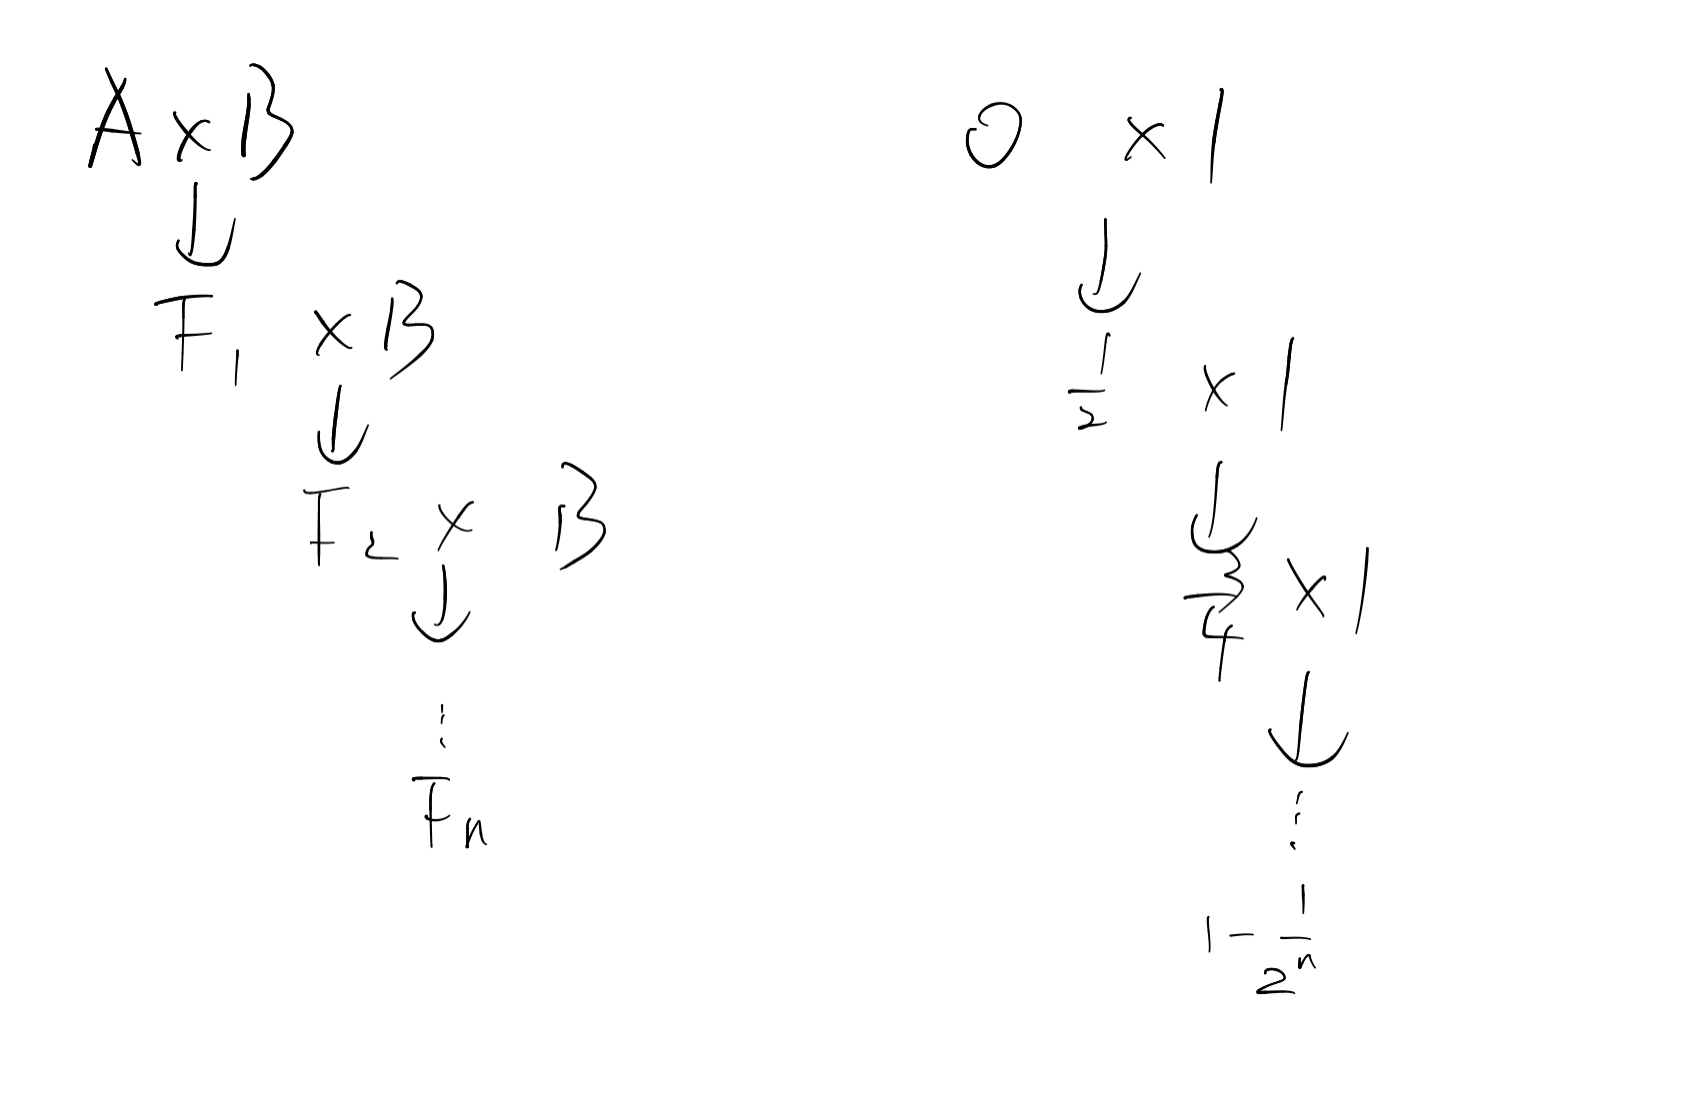 A × B
↓
F₁ × B
↓
F₂ × B
↓
⋮
Fn
0 × 1
↓
1/2 × 1
↓
3/4 × 1
↓
⋮
1 - 1/2ⁿ